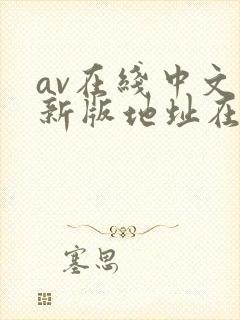 av在线中文
新版地址在
塞思